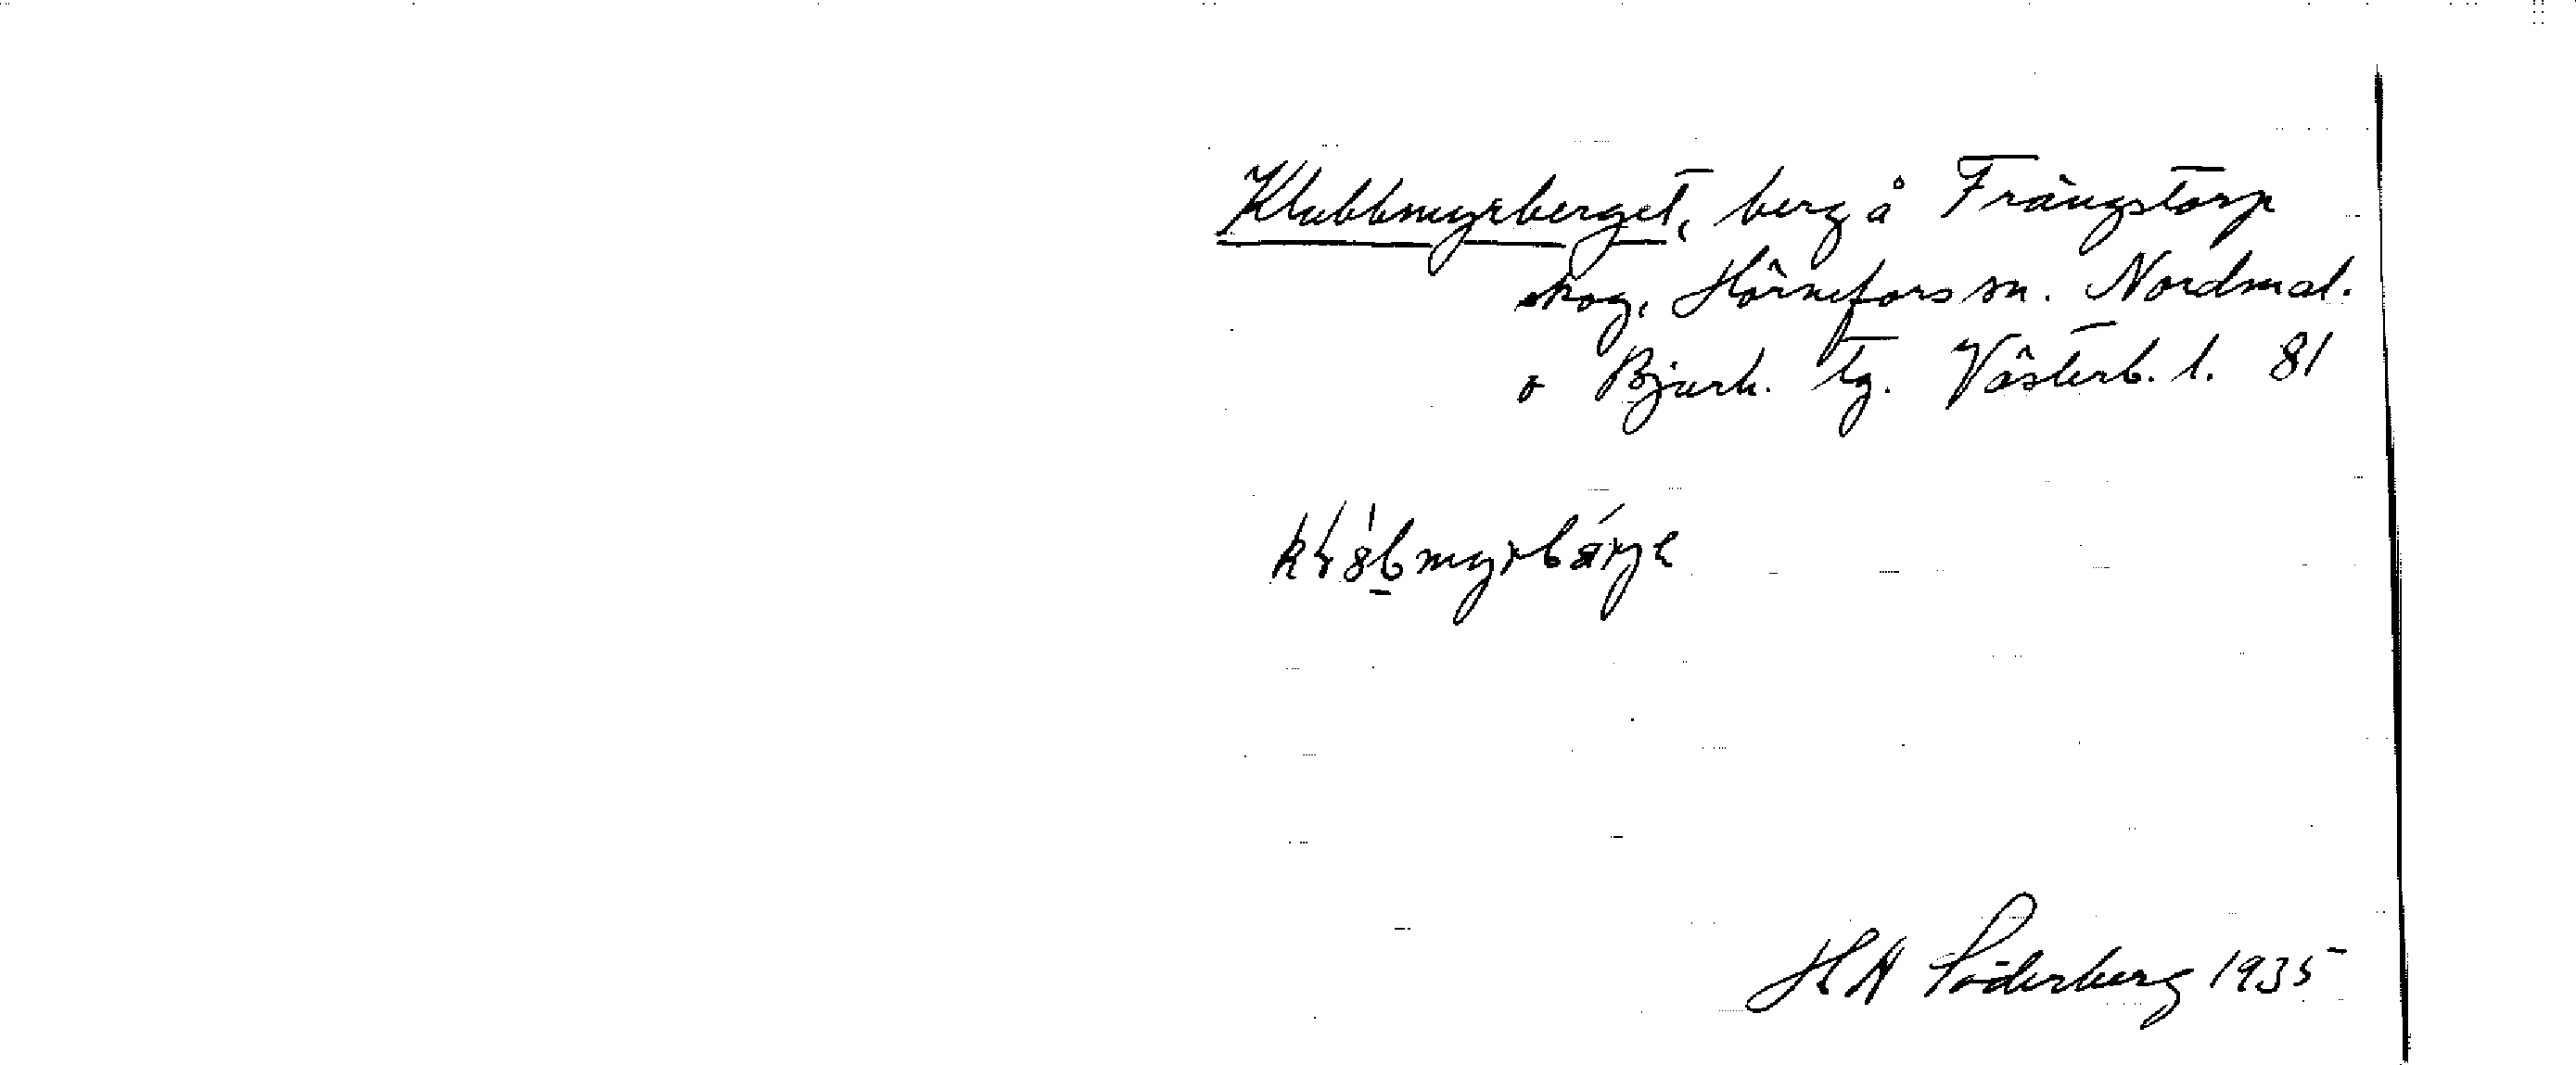 Klubbmyrberget, berg å Frängstorp
skog, Hörnefors sn. Nordmal.
o Bjurh. tg. Västerb. l. 81
HA Söderberg 1935